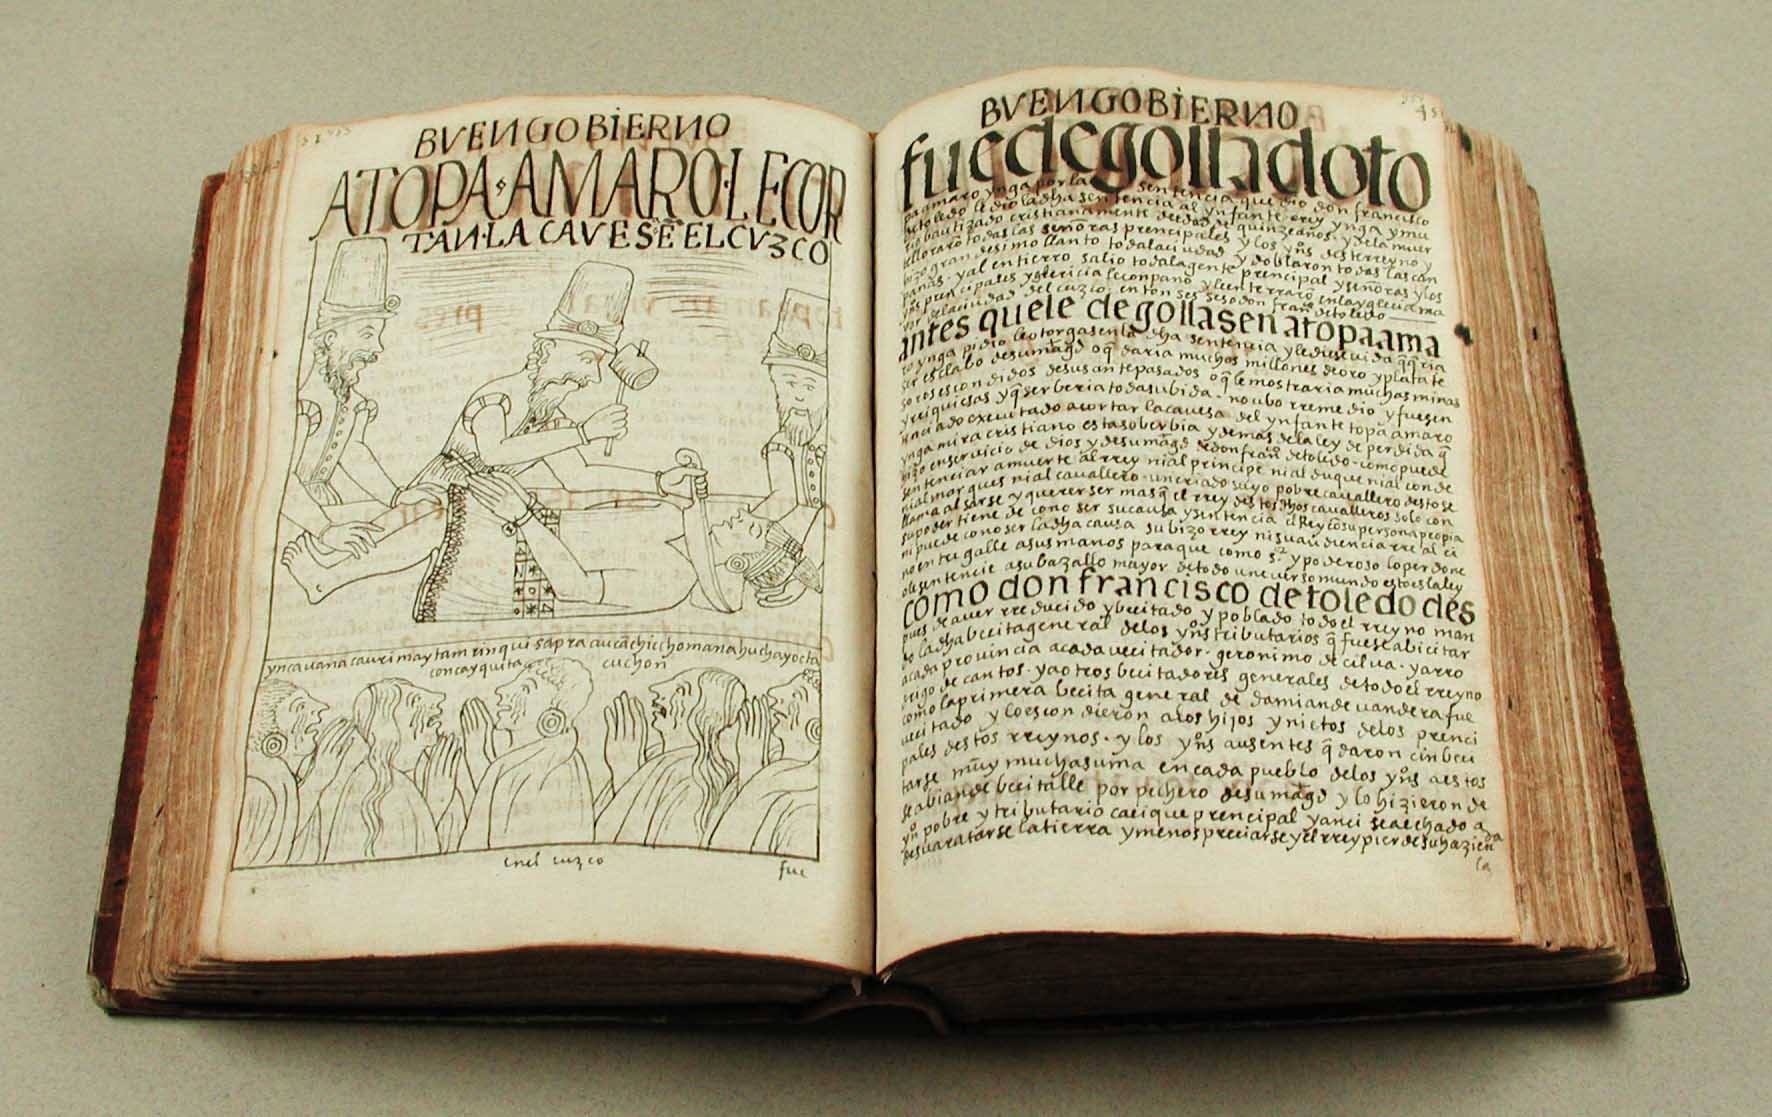 BVEN GOBIERNO
A TOPA AMARO LE COR
TAN LA CAVESĒ EL CVZCO
ynca uana cauri maytam rinqui sapra aucãchic cho mana huchayocta
concayquita cuchon
enel cuzco
fue
BVEN GOBIERNO
fue degollado to
pa amaro ynga por la sentencia que dio don francisco
de toledo le dio la dha sentencia al ynfante rrey ynga y mu
rio bautizado cristianamente de edad de quinze años y de la muer
te lloraron todas las señoras prencipales y los yņs deste rreyno y
hizo grandesimo llanto toda la ciudad y doblaron todas las can
panas y al entierro salio toda la gente prencipal y señoras y los
yņs prencipales y la clericia le conpaño y le enterraron en la yglecia ma
yor de la ciudad del cuzco entonses seso don franco de toledo
antes que le degollasen a topa ama
ro ynga pidio le otorgasen la dha sentencia y le diese uida q̃ q̃ria
ser esclabo de su magd o q̃ daria muchos millones de oro y plata te
soros escondidos de sus antepasados o q̃ le mostraria muchas minas
y rriquiesas y q̃ serberia toda su bida no ubo rremedio y fue sen
tenciado executado a cortar la cauesa del ynfante topa amaro
ynga mira cristiano esta soberbia y demas de la ley de perdida q̃
hizo en seruicio de dios y de su magd don franco de toledo como puede
sentenciar a muerte al rrey ni al principe ni al duque ni al conde
ni al marques ni al cauallero un criado suyo pobre cauallero desto se
llama alsarse y querer ser mas q̃ el rrey destos dhos caualleros solo con
su poder tiene de conoser su causa y sentencia el rrey cõ su persona propia
ni puede conoser la dha causa su bizorrey ni su audiencia rreal ci
no entregalle a sus manos para que como sr y poderoso lo perdone
o le sentencie a su bazallo mayor de todo uneuerso mundo esto es la ley
como don francisco de toledo des
pues de auer rreducido y becitado y poblado todo el rreyno man
do la dha becita general de los yņs tributarios q̃ fuese a bicitar
a cada prouincia a cada uecitador geronimo de cilua y a rro
drigo de cantos y a otros becitadores generales de todo el rreyno
como la primera becita general de damian de uandera fue
uecitado y lo escondieron a los hijos y nietos de los prenci
pales destos rreynos y los yņs ausentes q̃daron cin beci
tarse muy mucha suma en cada pueblo de los yņs a estos
se abian de becitalle por pechero de su magd y lo hizieron de
yņ pobre y tributario cacique prencipal y anci se a echado a
desuaratarse la tierra y menospreciarse y el rrey pierde su hazienda
la